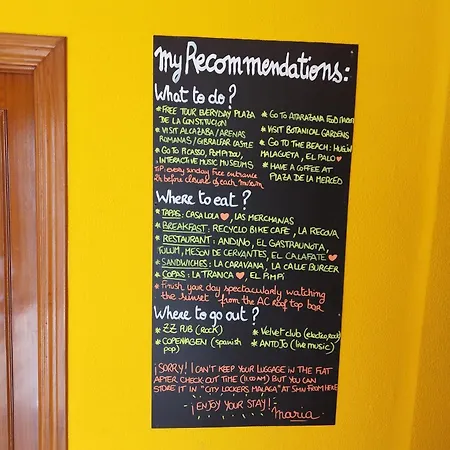 my Recommendations:
What to do?
* FREE TOUR EVERYDAY PLAZA
DE LA CONSTITUCION
* VISIT ALCAZABA/ARENAS
ROMANAS/GIBRALFAR CASTLE
* GO TO PICASSO, POMPIDOU,
INTERACTIVE MUSIC MUSEUMS
TIP: every sunday free entrance
2h before closure of each museum
* GO TO ATARAZANA FOOD MARKET
* VISIT BOTANICAL GARDENS
* GO TO THE BEACH: HUELIN
MALAGUETA, EL PALO ♥
* HAVE A COFFEE AT
PLAZA DE LA MERCED
Where to eat?
* TAPAS: CASA LOLA ♥, LAS MERCHANAS
* BREAKFAST: RECYCLO BIKE CAFÉ, LA RECOVA
* RESTAURANT: ANDINO, EL GASTRAUNOTA,
TULUM, MESON DE CERVANTES, EL CALAFATE ♥
* SANDWICHES: LA CARAVANA, LA CALLE BURGER
* COPAS: LA TRANCA ♥, EL PIMPI
* Finish your day spectacularly watching
the sunset from the AC Rooftop bar
Where to go out?
* ZZ PUB (ROCK)
* COPENAGEN (spanish
pop)
* Velvet club (electro, rock)
* ANTOJO (live music)
¡SORRY! I CAN'T KEEP YOUR LUGGAGE IN THE FLAT
AFTER CHECK OUT TIME (11:00 AM) BUT YOU CAN
STORE IT IN "CITY LOCKERS MALAGA" AT 5MN FROM HERE
¡ENJOY YOUR STAY!
Maria